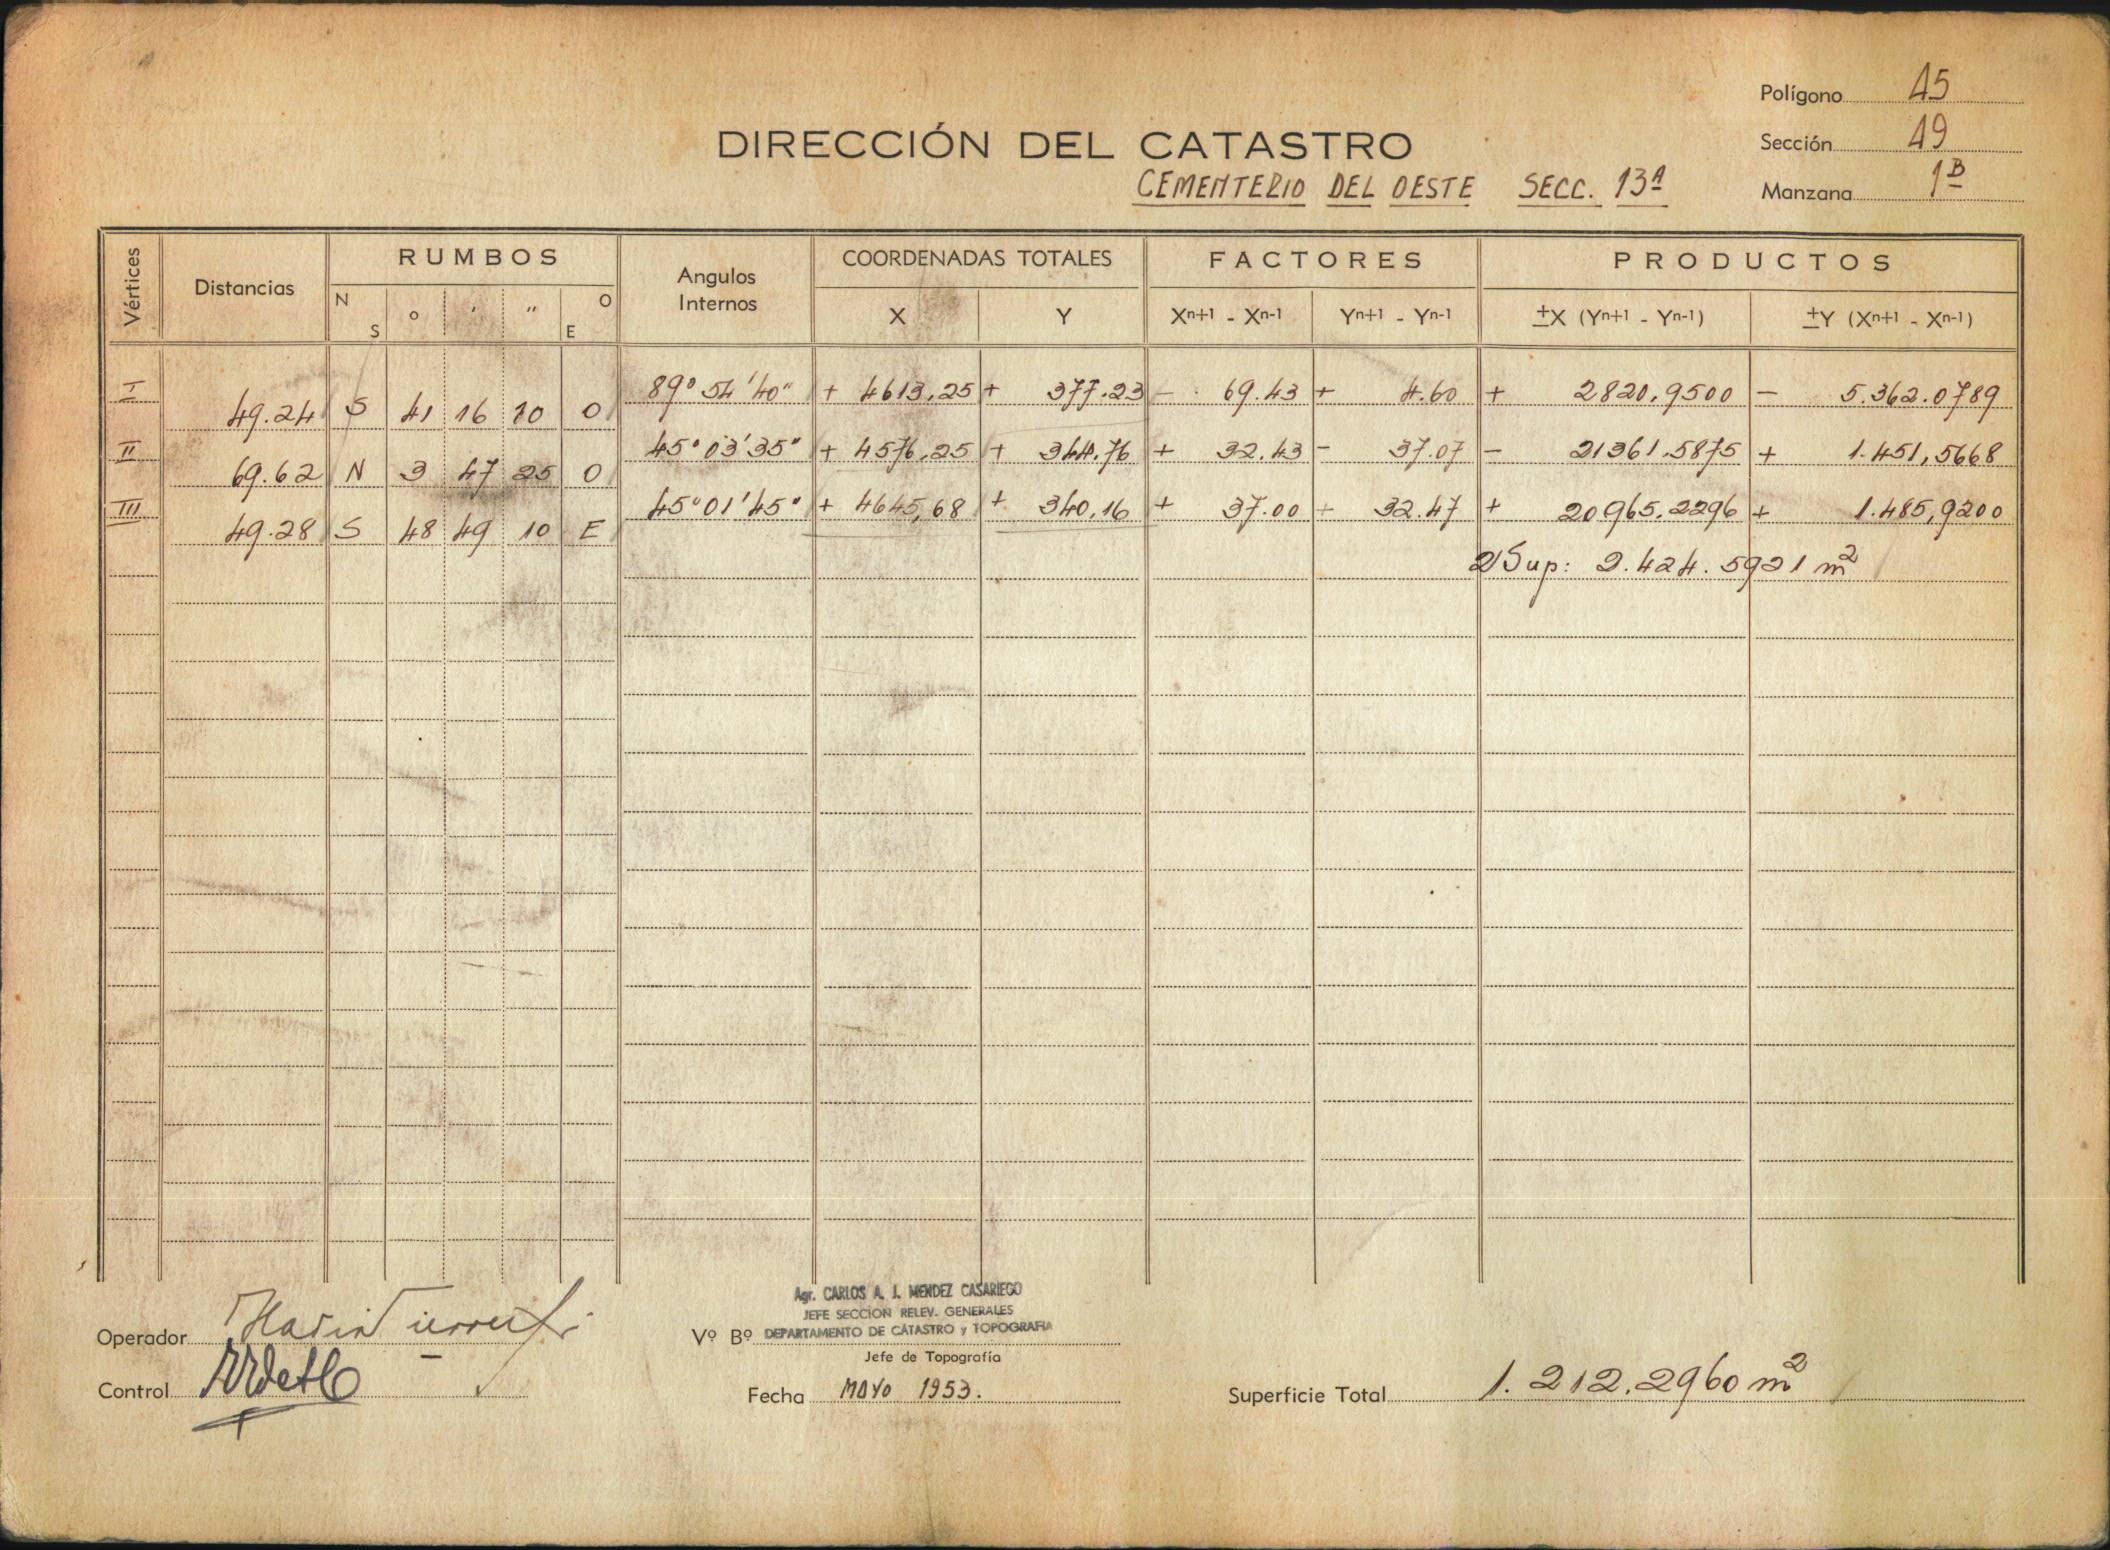 Polígono 45
DIRECCIÓN DEL CATASTRO
Sección 49
CEMENTERIO DEL OESTE SECC. 13ª
Manzana 1B
Vértices Distancias RUMBOS Angulos Internos COORDENADAS TOTALES FACTORES PRODUCTOS
N S ° ' " O E X Y Xn+1 - Xn-1 Yn+1 - Yn-1 ±X (Yn+1 - Yn-1) ±Y (Xn+1 - Xn-1)
I 89° 54' 40" + 4613,25 + 377.23 - 69.43 + 4.60 + 2820,9500 - 5.362.0789
49.24 S 41 16 10 O
II 45° 03' 35" + 4576,25 + 344.76 + 32.43 - 37.07 - 21361.5875 + 1.451,5668
69.62 N 3 47 25 O
III 45° 01' 45" + 4645,68 + 340,16 + 37.00 + 32.47 + 20965.2296 + 1.485,9200
49.28 S 48 49 10 E
2 Sup: 2.424.5921 m²
Agr. CARLOS A. J. MENDEZ CASARIEGO
JEFE SECCION RELEV. GENERALES
Operador
Vº Bº DEPARTAMENTO DE CATASTRO y TOPOGRAFIA
Jefe de Topografía
Control
Fecha MAYO 1953.
Superficie Total 1.212.2960 m²